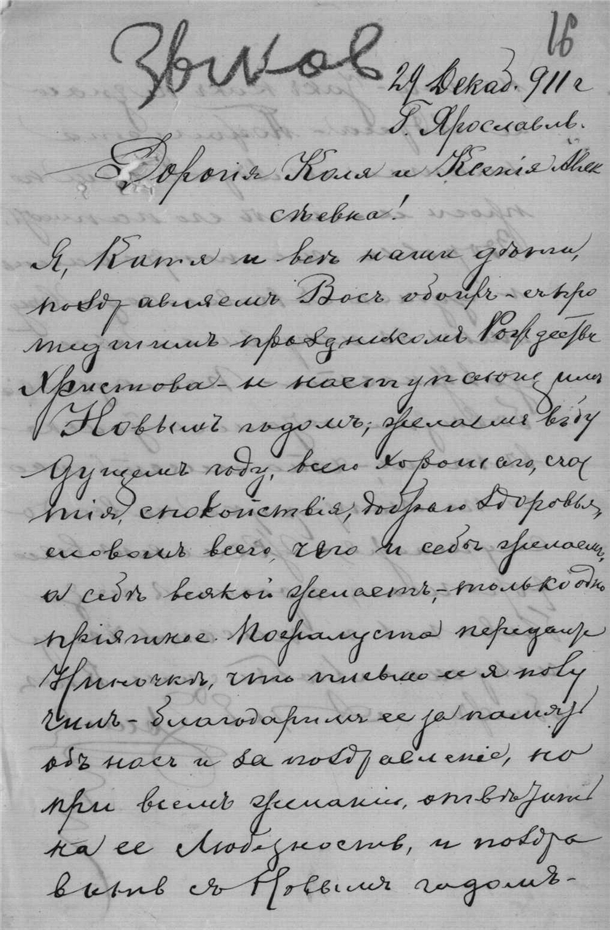 16
Зыков
29 Декаб. 911 г
Г. Ярославль.
Дорогія Коля и Ксенія Алек
сѣевна!
Я, Катя и всѣ наши дѣти,
поздравляемъ Васъ обоихъ - съ про
шедшимъ праздникомъ Рождеств
Христова - и наступающимъ
Новымъ годомъ; желаемъ въ бу
дущемъ году, всего хорошаго, сча
тія, спокойствія, добраго здоровья,
словомъ всего, чего и себѣ желаемъ,
а себѣ всякой желаетъ, - только одно
пріятное. Пожалуста передайте
Ниночкѣ, что письмо ее я полу
чилъ - благодаримъ ее за память
объ насъ и за поздравленіе, но
при всемъ желаніи, отвѣтить
на ее любезность, и поздра
вить съ Новымъ годомъ -